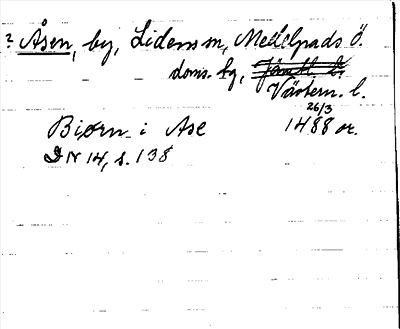 ? Åsen, by, Lidens sn, Medelpads ö.
doms. by, Jämtl. l.
Västern. l.
26/3
Biørn i Ase 1488 or.
DN 14, s. 138